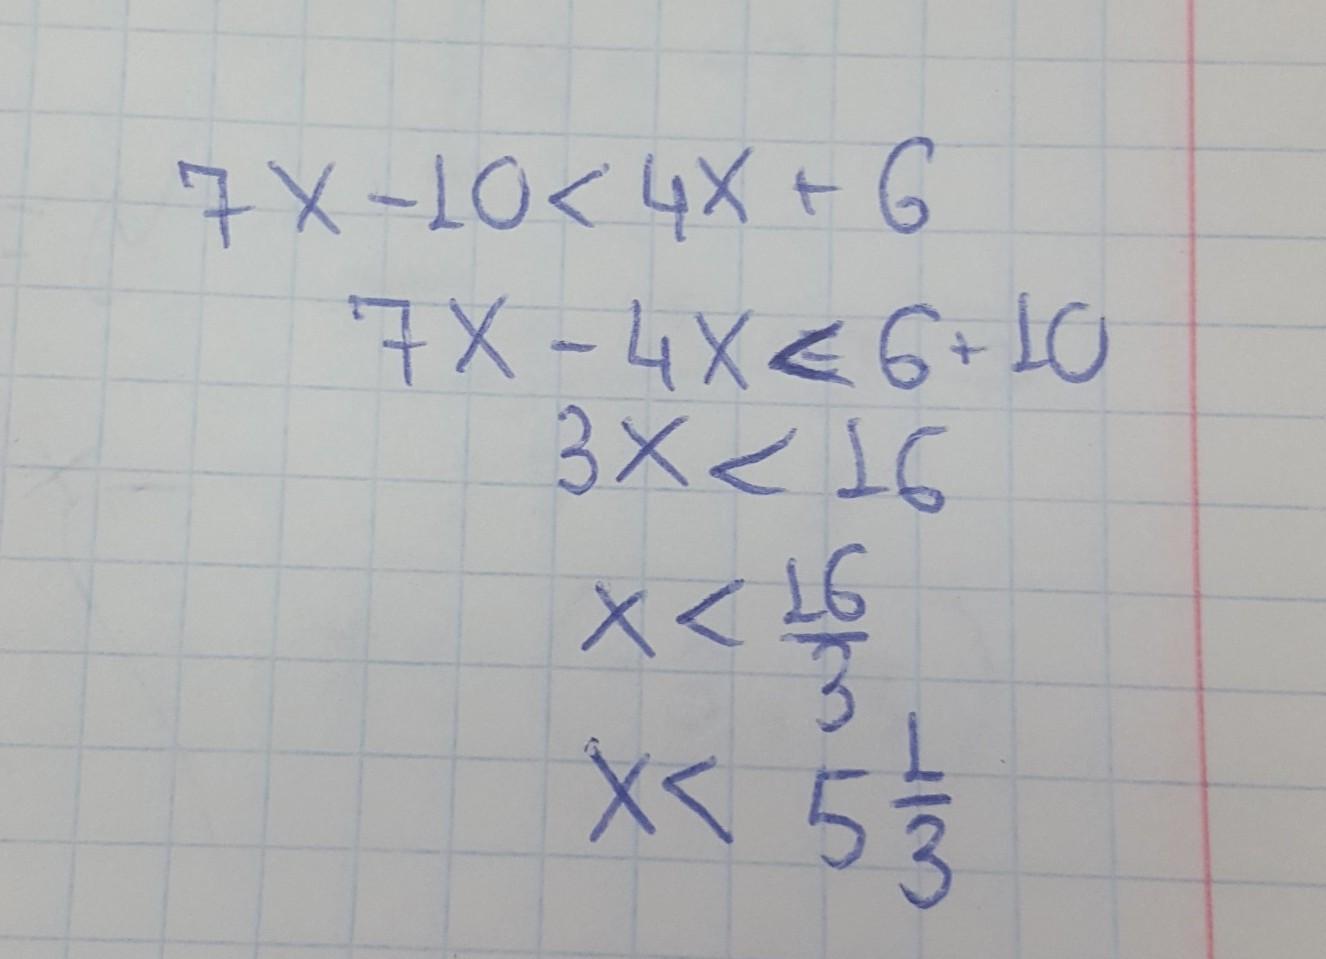 7x - 10 < 4x + 6
7x - 4x < 6 + 10
3x < 16
x < 16/3
x < 5 1/3